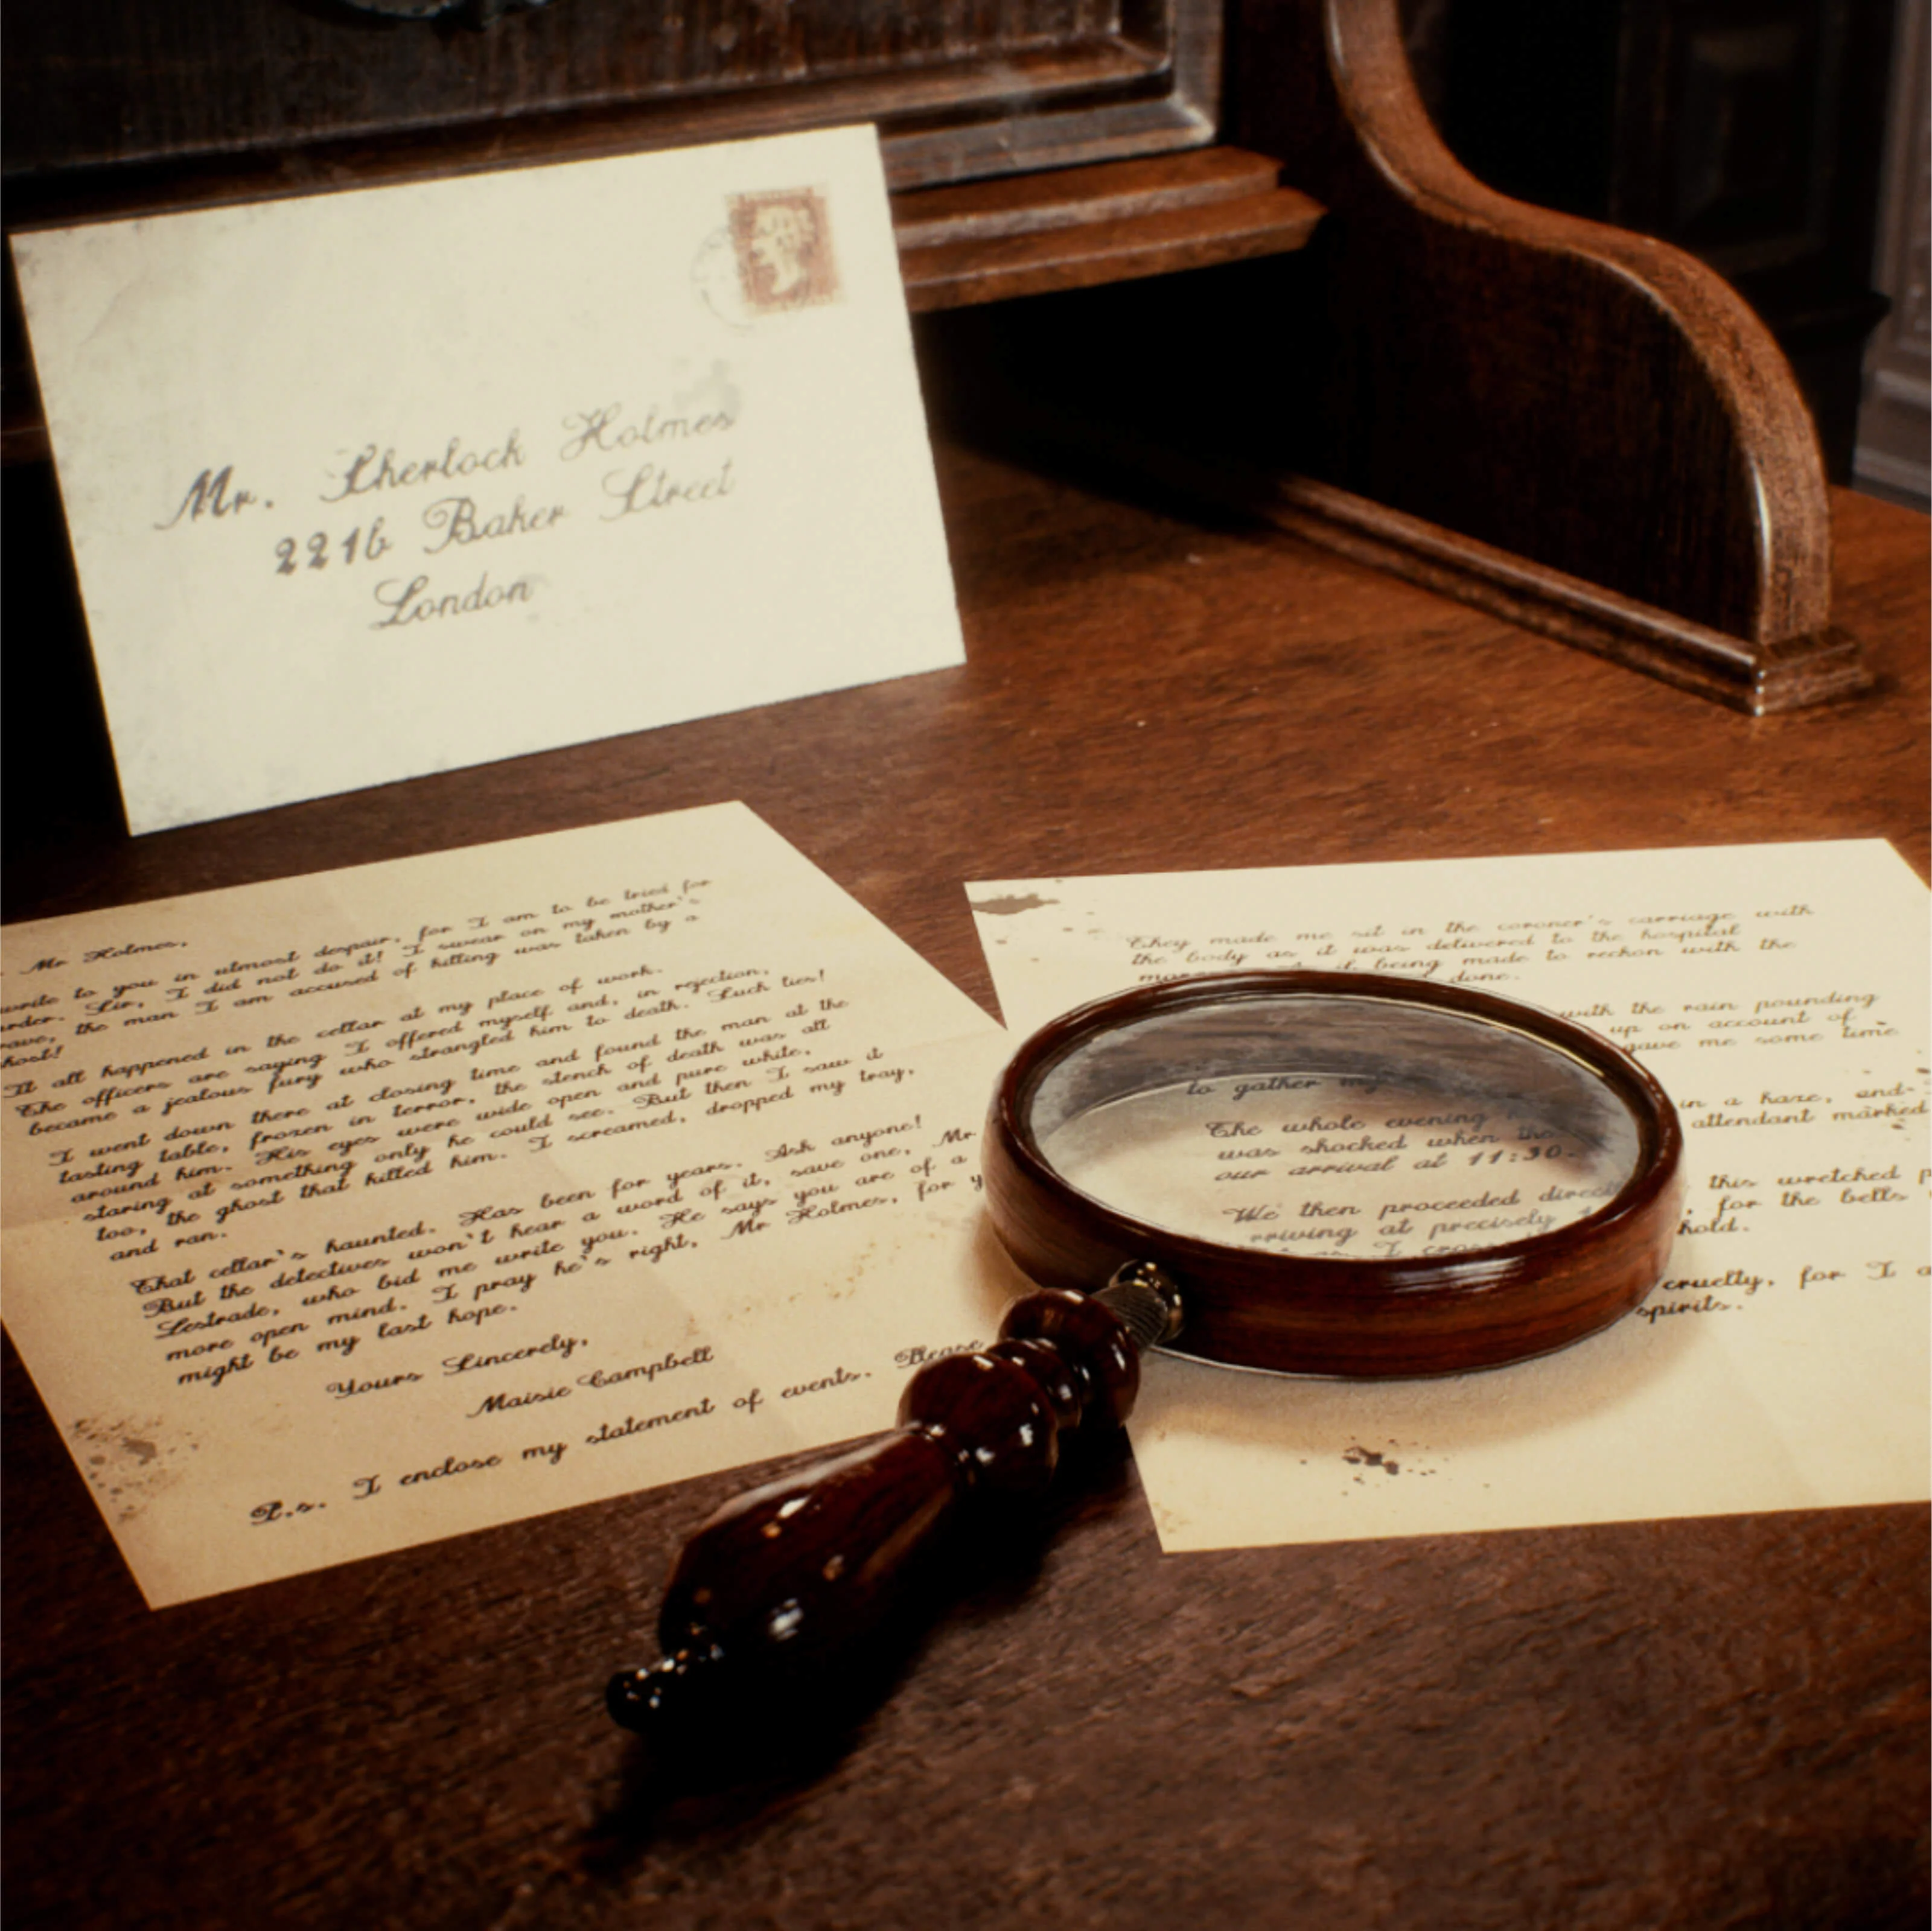 Mr. Sherlock Holmes
221b Baker Street
London
Mr Holmes,
write to you in utmost despair, for I am to be tried for
Sir, I did not do it! I swear on my mother's
the man I am accused of killing was taken by a
It all happened in the cellar at my place of work.
The officers are saying I offered myself and, in rejection,
became a jealous fury who strangled him to death. Such lies!
I went down there at closing time and found the man at the
tasting table, frozen in terror, the stench of death was all
around him. His eyes were wide open and pure white,
staring at something only he could see. But then I saw it
too, the ghost that killed him. I screamed, dropped my tray,
and ran.
That cellar's haunted. Has been for years. Ask anyone!
But the detectives won't hear a word of it, save one, Mr
Lestrade, who bid me write you. He says you are of a
more open mind. I pray he's right, Mr Holmes, for y
might be my last hope.
Yours Sincerely,
Maisie Campbell
P.s. I enclose my statement of events. Please
They made me sit in the coroner's carriage with
the body as it was delivered to the hospital
being made to reckon with the
done.
with the rain pounding
up on account of
gave me some time
to gather my
The whole evening
in a haze, and
was shocked when the
attendant marked
our arrival at 11:30.
We then proceeded
this wretched p
arriving at precisely
for the bells
I
hold.
cruelty, for I a
spirits.